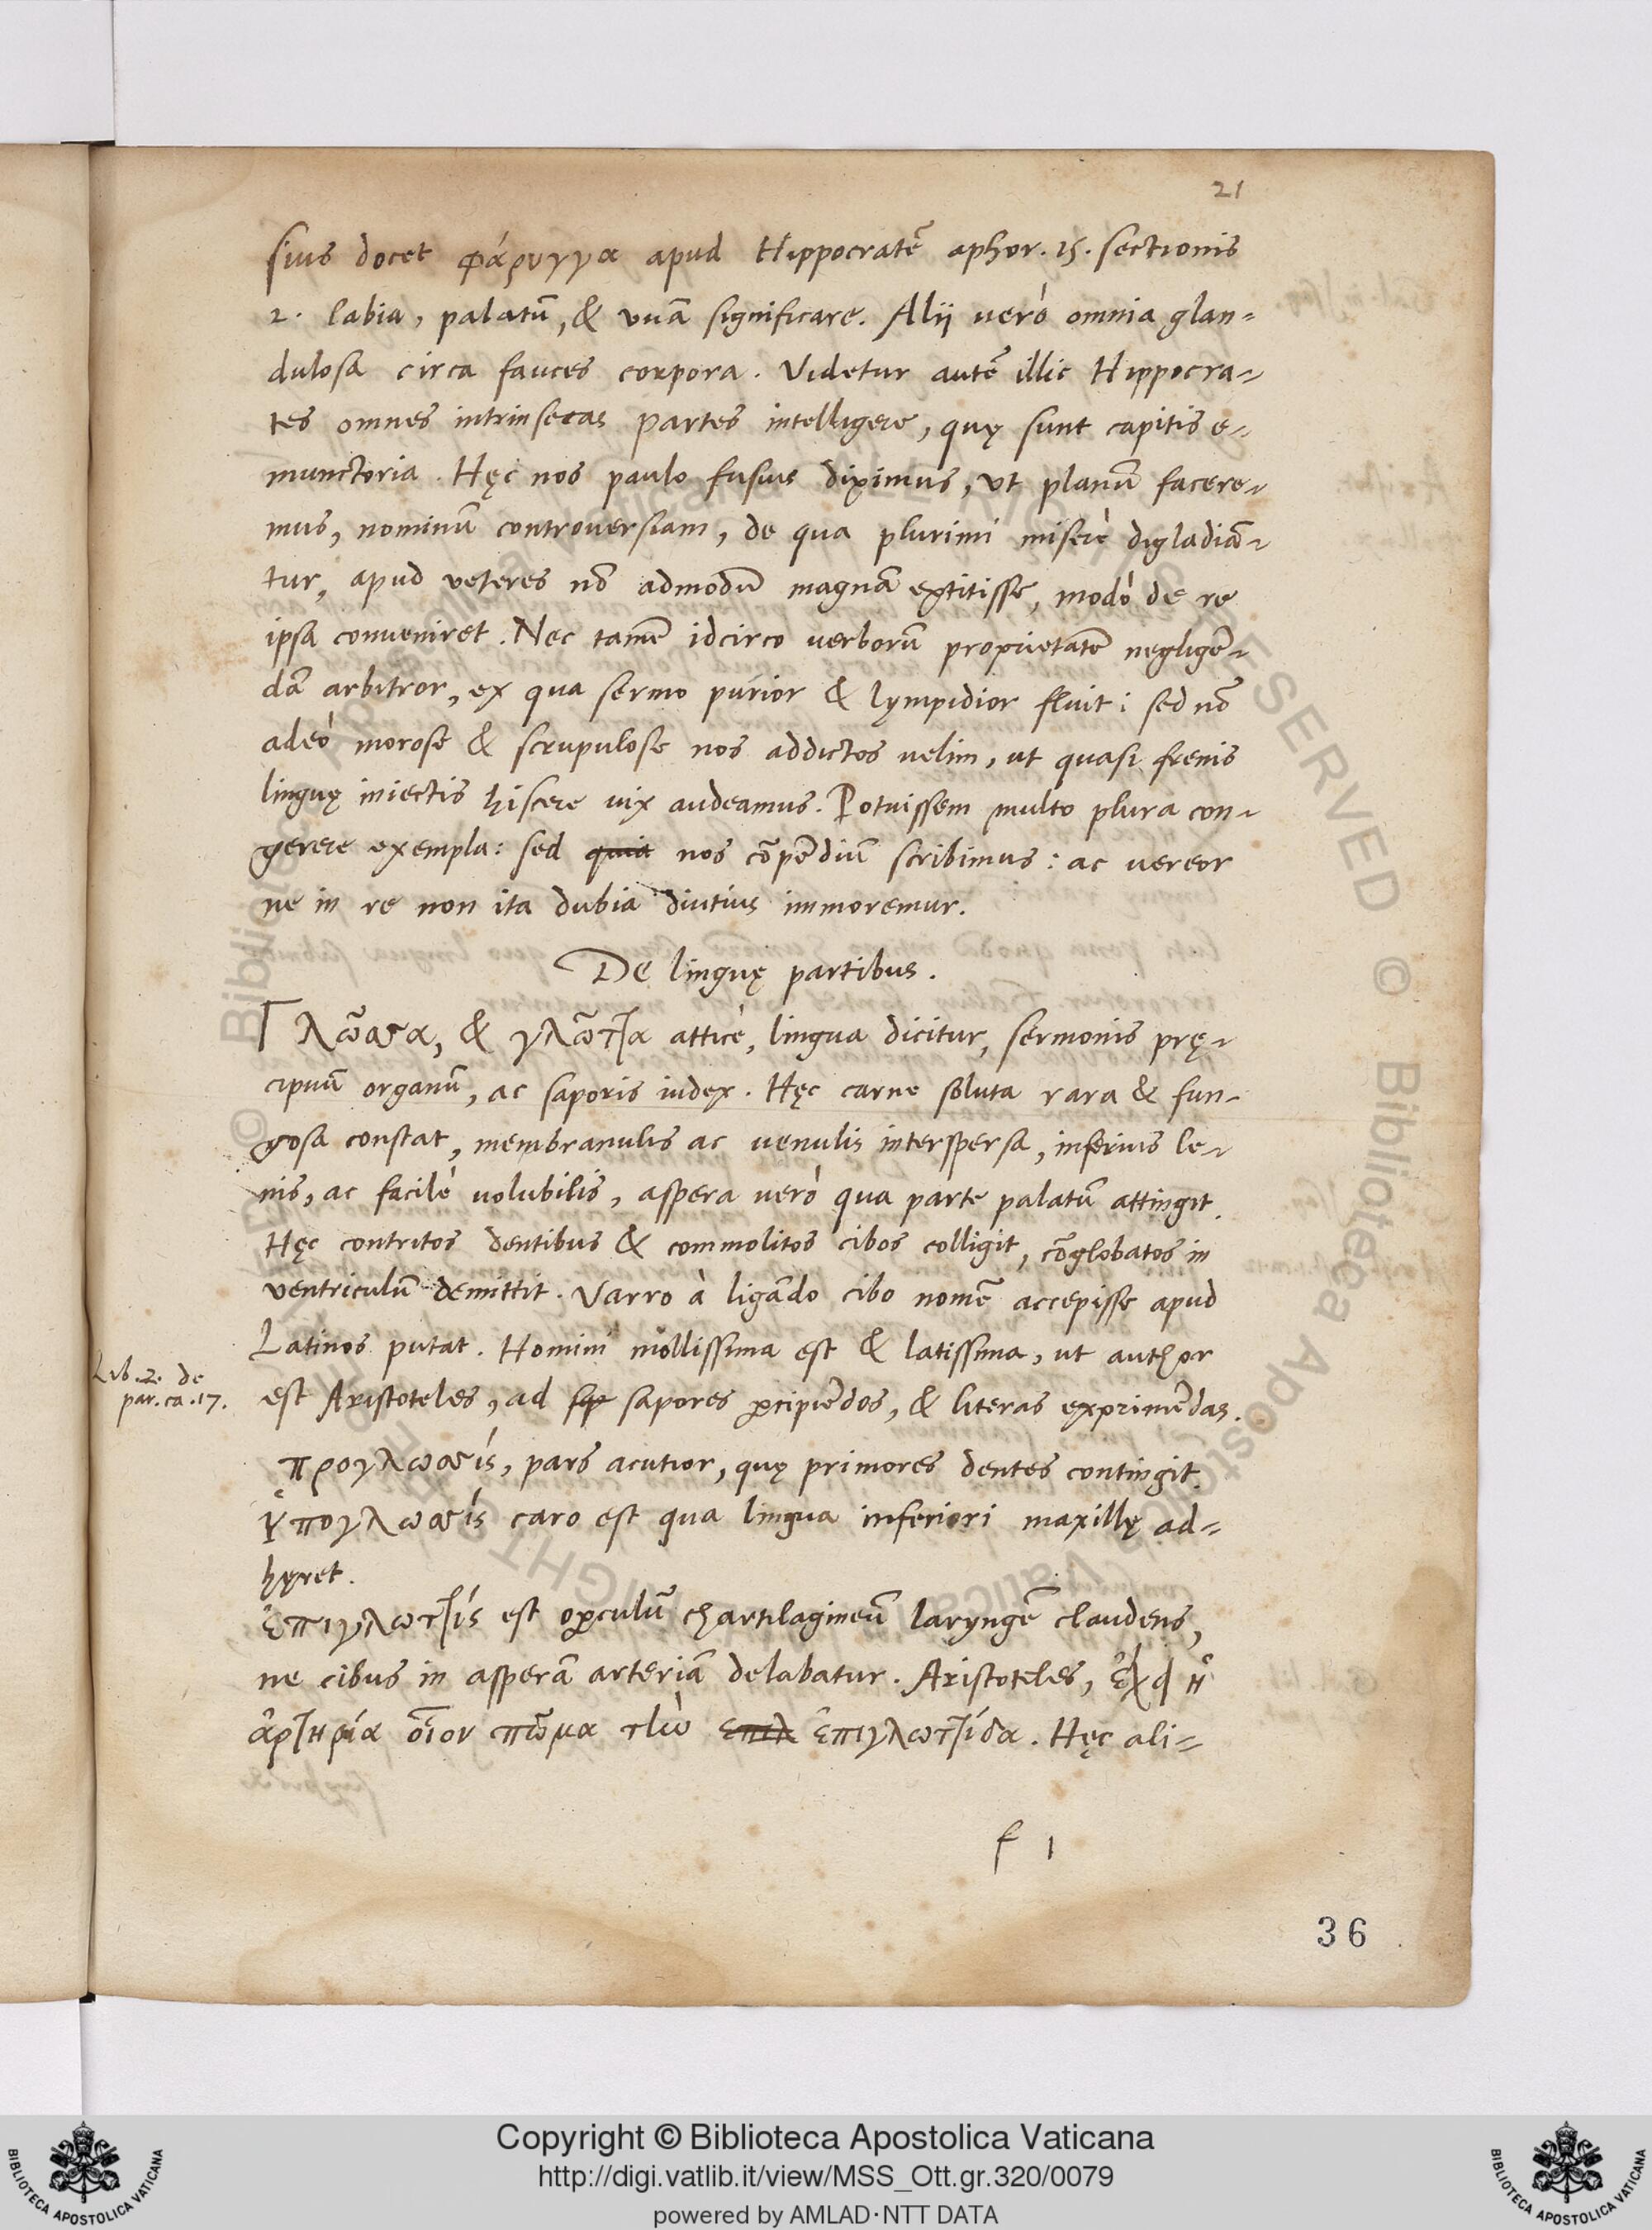 21
sius docet φάρυγγα apud Hippocratē aphor. 15. sectionis
2. labia, palatū, & vuā significare. Alij verò omnia glan=
dulosa circa fauces corpora. Videtur autē illic Hippocra=
tes omnes intrinsecas partes intelligere, quę sunt capitis e=
munctoria. Hęc nos paulo fusius diximus, vt planū facere=
mus, nominū controuersiam, de qua plurimi miserè digladiā=
tur, apud veteres nō admodū magnā extitisse, modò de re
ipsa conueniret. Nec tamē idcirco verborū proprietatē negligē=
dā arbitror, ex qua sermo purior & lympidior fluit: sed nō
adeò morose & scrupulose nos addictos velim, ut quasi frenis
linguę iniectis hiscere vix audeamus. Potuissem multo plura con=
gerere exempla: sed quia nos cōpēdiū scribimus: ac vereor
ne in re non ita dubia diutius immoremur.
De linguę partibus.
Γλῶσσα, & γλῶττα atticè, lingua dicitur, sermonis prę=
cipuū organū, ac saporis iudex. Hęc carne soluta rara & fun=
gosa constat, membranulis ac venulis interspersa, inferius le=
nis, ac facilè volubilis, aspera verò qua parte palatū attingit.
Hęc contritos dentibus & commolitos cibos colligit, cōglobatos in
ventriculū demittit. Varro à ligādo cibo nomē accepisse apud
Latinos putat. Homini mollissima est & latissima, ut author
Lib. 2. de
par. ca. 17.
est Aristoteles, ad sap sapores pcipiēdos, & literas exprimēdas.
προγλωσσίς, pars acutior, quę primores dentes contingit.
Ὑπογλωσσίς caro est qua lingua inferiori maxillę ad=
hęret.
ἐπιγλωττίς est opculū chartilagineū laryngē claudens,
ne cibus in asperā arteriā delabatur. Aristoteles, ἔχει ἡ
ἀρτηρία οἷον πῶμα τὴν επιλ ἐπιγλωττίδα. Hęc ali=
f 1
36
© Biblioteca Apostolica Vaticana ALL RIGHTS RESERVED
© Biblioteca Apostolica Vaticana ALL RIGHTS RESERVED
Copyright © Biblioteca Apostolica Vaticana
http://digi.vatlib.it/view/MSS_Ott.gr.320/0079
powered by AMLAD·NTT DATA
BIBLIOTECA APOSTOLICA VATICANA
BIBLIOTECA APOSTOLICA VATICANA